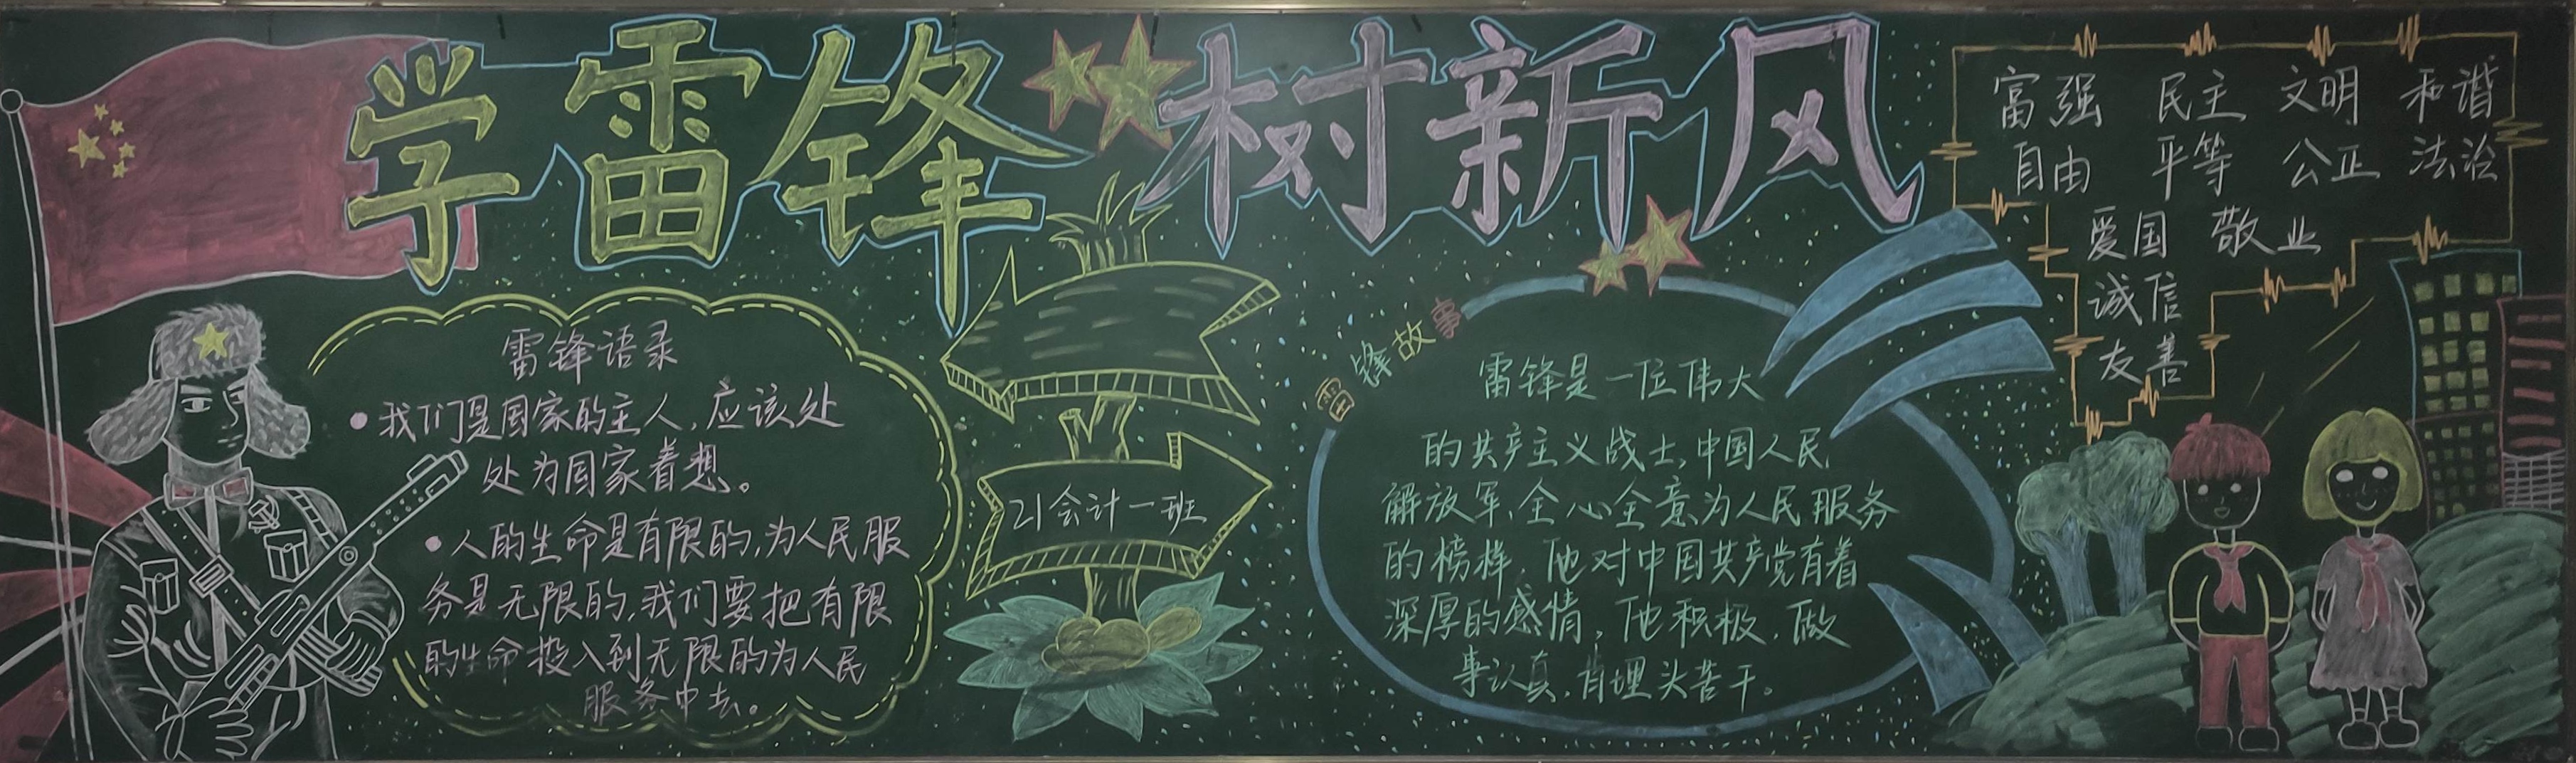 学雷锋 树新风
雷锋语录
我们是国家的主人,应该处
处为国家着想。
人的生命是有限的,为人民服
务是无限的,我们要把有限
的生命投入到无限的为人民
服务中去。
21会计一班
雷锋故事
雷锋是一位伟大
的共产主义战士,中国人民
解放军,全心全意为人民服务
的榜样,他对中国共产党有着
深厚的感情,他积极,做
事认真,肯埋头苦干。
富强 民主 文明 和谐
自由 平等 公正 法治
爱国 敬业
诚信
友善